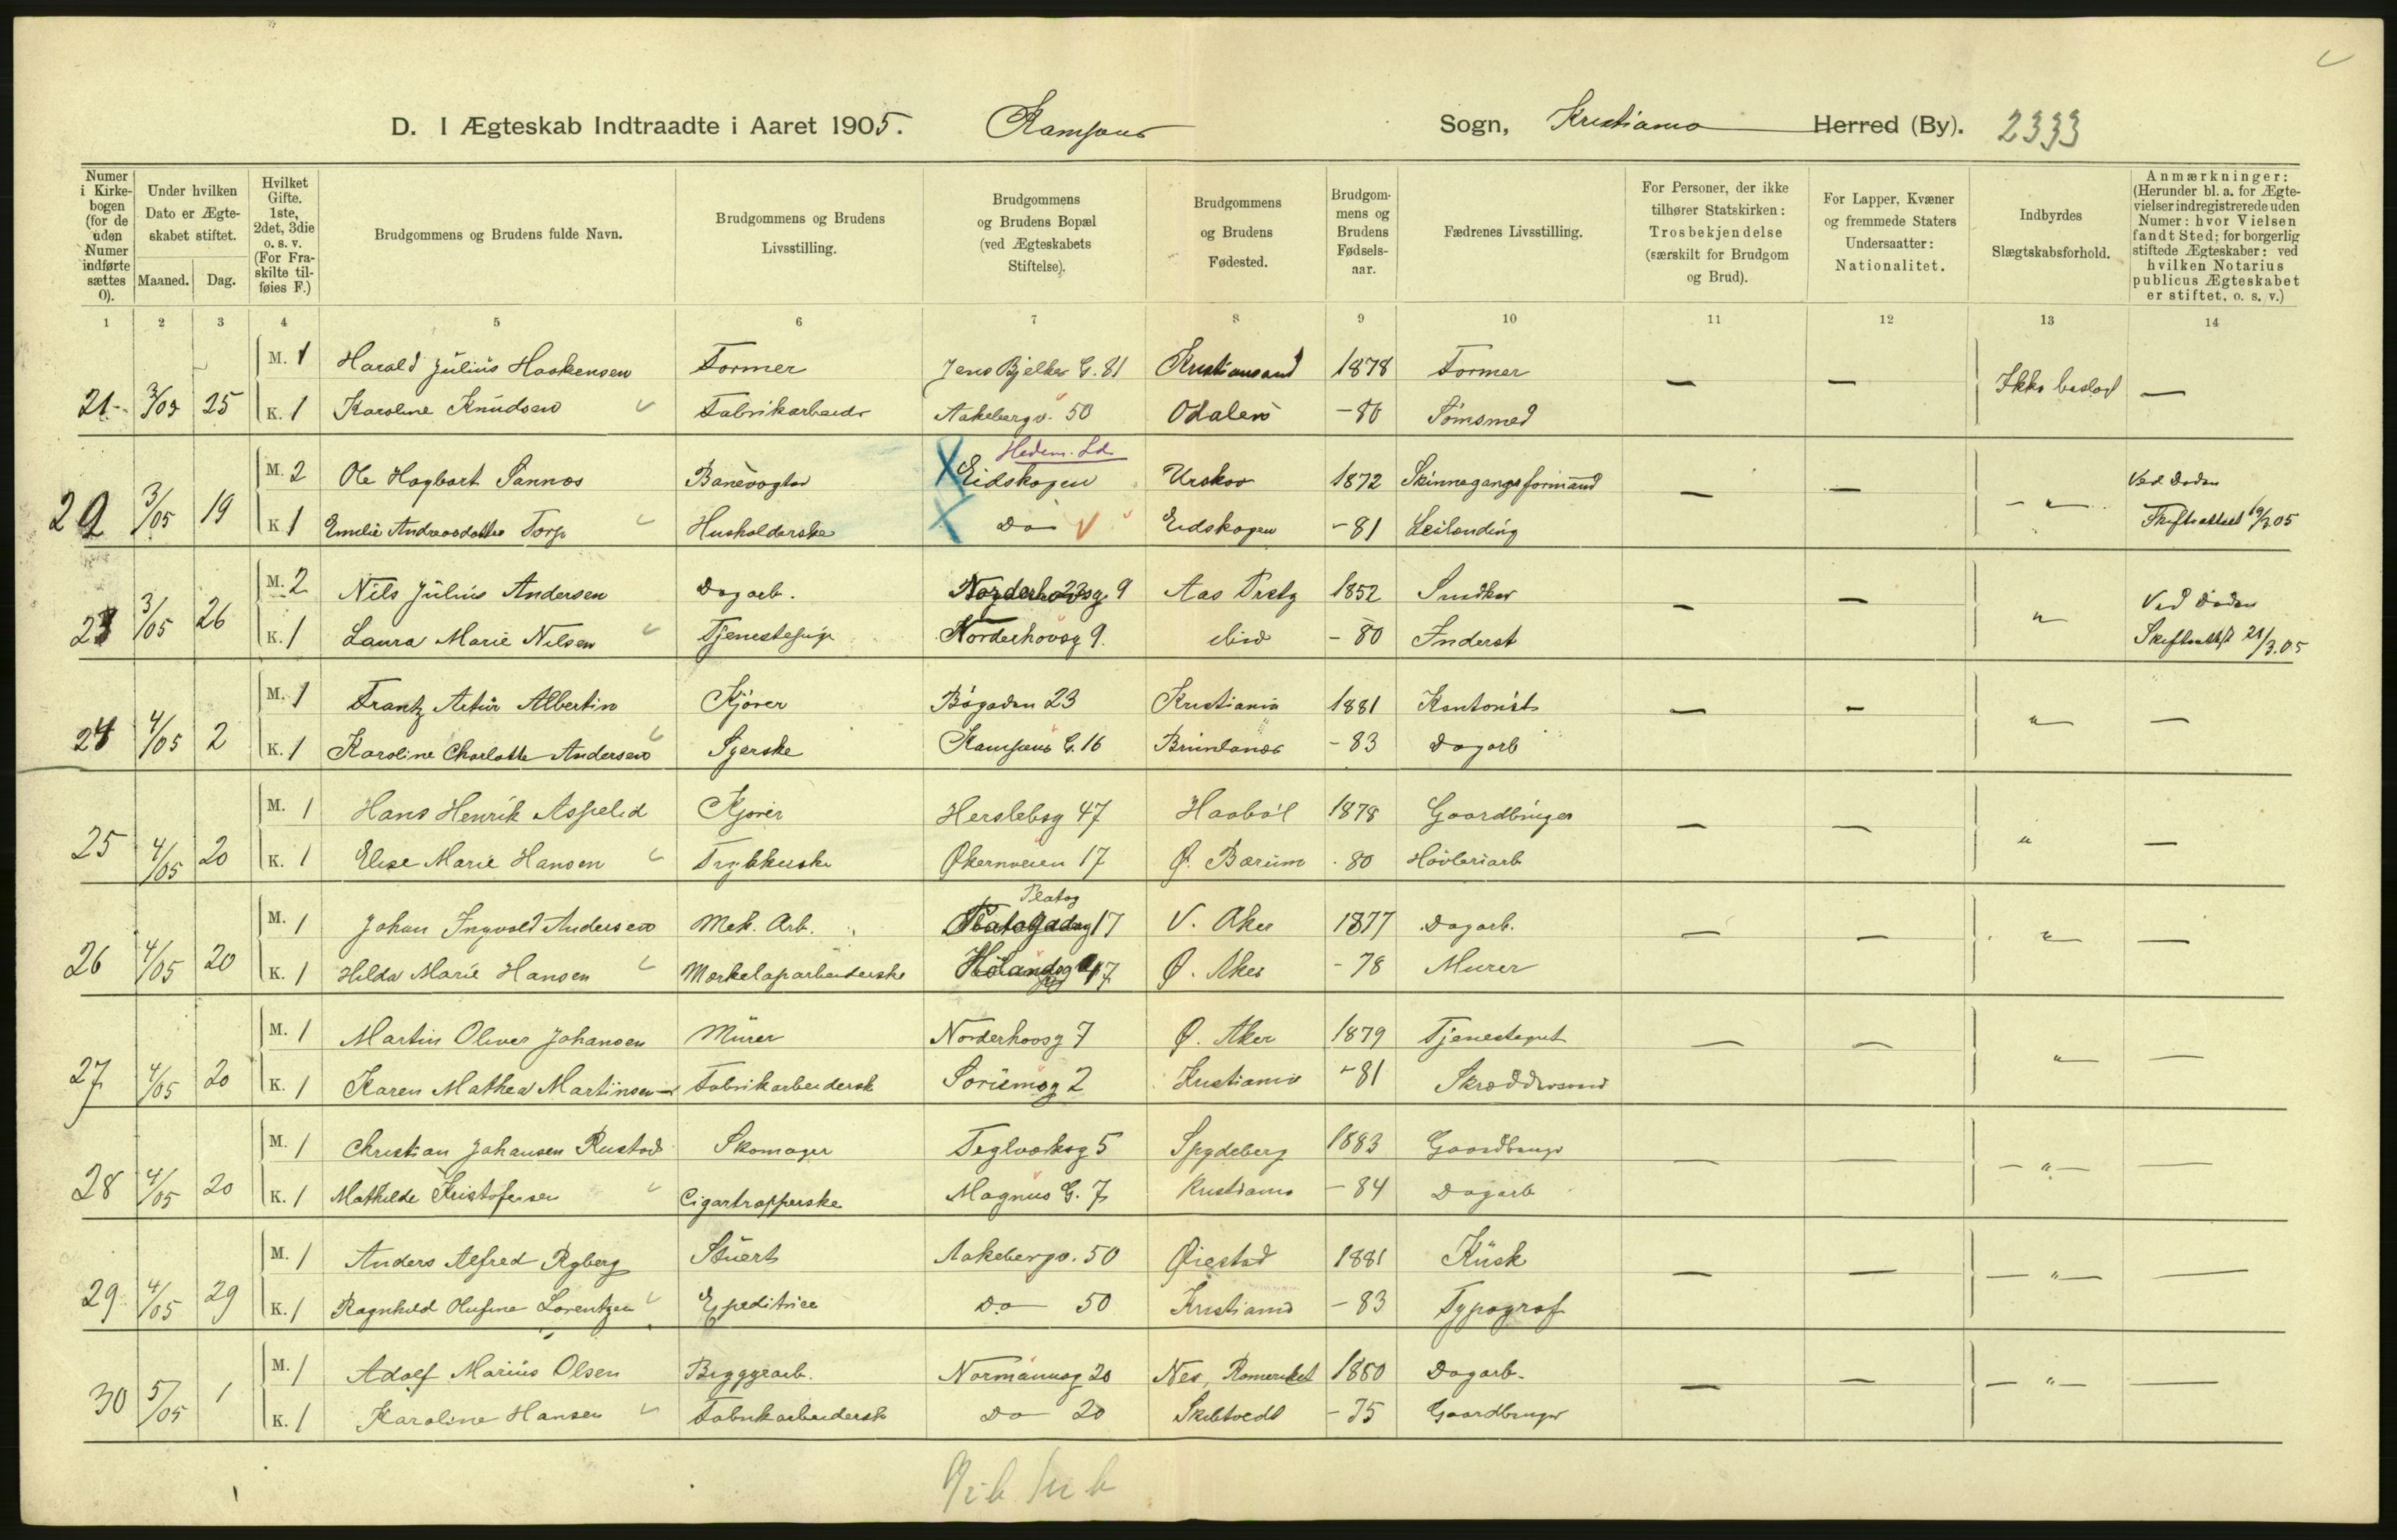 D. I Ægteskab Indtraadte i Aaret 1905. Kampens Sogn, Kristiania Herred (By). 2333
Numer i Kirkebogen (for de uden Numer indførte sættes 0).
Under hvilken Dato er Ægteskabet stiftet.
Maaned. Dag.
Hvilket Gifte. 1ste, 2det, 3die o. s. v. (For Fraskilte tilføies F.)
Brudgommens og Brudens fulde Navn.
Brudgommens og Brudens Livsstilling.
Brudgommens og Brudens Bopæl (ved Ægteskabets Stiftelse).
Brudgommens og Brudens Fødested.
Brudgommens og Brudens Fødselsaar.
Fædrenes Livsstilling.
For Personer, der ikke tilhører Statskirken: Trosbekjendelse (særskilt for Brudgom og Brud).
For Lapper, Kvæner og fremmede Staters Undersaatter: Nationalitet.
Indbyrdes Slægtskabsforhold.
Anmærkninger: (Herunder bl. a. for Ægtevielser indregistrerede uden Numer: hvor Vielsen fandt Sted; for borgerlig stiftede Ægteskaber: ved hvilken Notarius publicus Ægteskabet er stiftet, o. s. v.)
1 2 3 4 5 6 7 8 9 10 11 12 13 14
M. 1 Harald Julius Haakensen Former Jens Bjelkes G. 81 Kristiansand 1878 Former — — Ikke beslæg —
21 3/05 25 K. 1 Karoline Knudsen Fabrikarbeider Aakebergv. 50 Odalen - 80 Sømsmed
Hedem. Ld.
M. 2 Ole Hagbart Sannæs Banevogter Eidskogen Urskov 1872 Skinnegangsformand — — - " - Ved Døden
22 3/05 19 K. 1 Emelie Andreasdatter Torp Husholderske Do Eidskogen - 81 Leilending Skifteattest 19/3 05
M. 2 Nils Julius Andersen Dagarb. Norderhovsg 9 Aas 1852 Snedker — — " Ved Døden
23 3/05 26 K. 1 Laura Marie Nilsen Tjenestepige Norderhovsg 9. - 80 Inderst Skifteattest 21/3.05
M. 1 Frantz Artur Albertin Kjører Bøgaden 23 Kristiania 1881 Kontorist — — " —
24 4/05 2 K. 1 Karoline Charlotte Andersen Syerske Kampens G. 16 Brunlanes - 83 Dagarb
M. 1 Hans Henrik Aspelid Kjører Herslebsg 47 Haabøl 1878 Gaardbruger — — " —
25 4/05 20 K. 1 Elise Marie Hansen Trykkerske Økernveien 17 Ø. Bærum - 80 Høvleriarb
Platog
M. 1 Johan Ingvald Andersen Mek. Arb. 17 V. Aker 1877 Dagarb. — — " —
26 4/05 20 K. 1 Hilda Marie Hansen 17 Ø. Aker - 78 Murer
M. 1 Martin Oliver Johansen Murer Norderhovsg 7 Ø. Aker 1879 Tjenestegut — — " —
27 4/05 20 K. 1 Karen Mathea Martinsen Fabrikarbeidersk 2 Kristiania - 81 Skræddersvend
M. 1 Christian Johansen Rustad Skomager Teglverksg 5 Spydeberg 1883 Gaardbruger — — - " - —
28 4/05 20 K. 1 Mathilde Kristofersen Cigartrapperske Magnus G. 7 Kristiania - 84 Dagarb
M. 1 Anders Alfred Ryberg Stuert Aakebergv. 50 Øiestad 1881 Kusk — — - " - —
29 4/05 29 K. 1 Ragnhild Olufine Lorentzen Expeditrice Do 50 Kristiania - 83 Typograf
M. 1 Adolf Marius Olsen Bryggearb. Normannsg 20 Nes, Romeriket 1880 Dagarb. — — - " - —
30 5/05 1 K. 1 Karoline Hansen Fabrikarbeidersk Do 20 Skibtvedt - 75 Gaardbruger